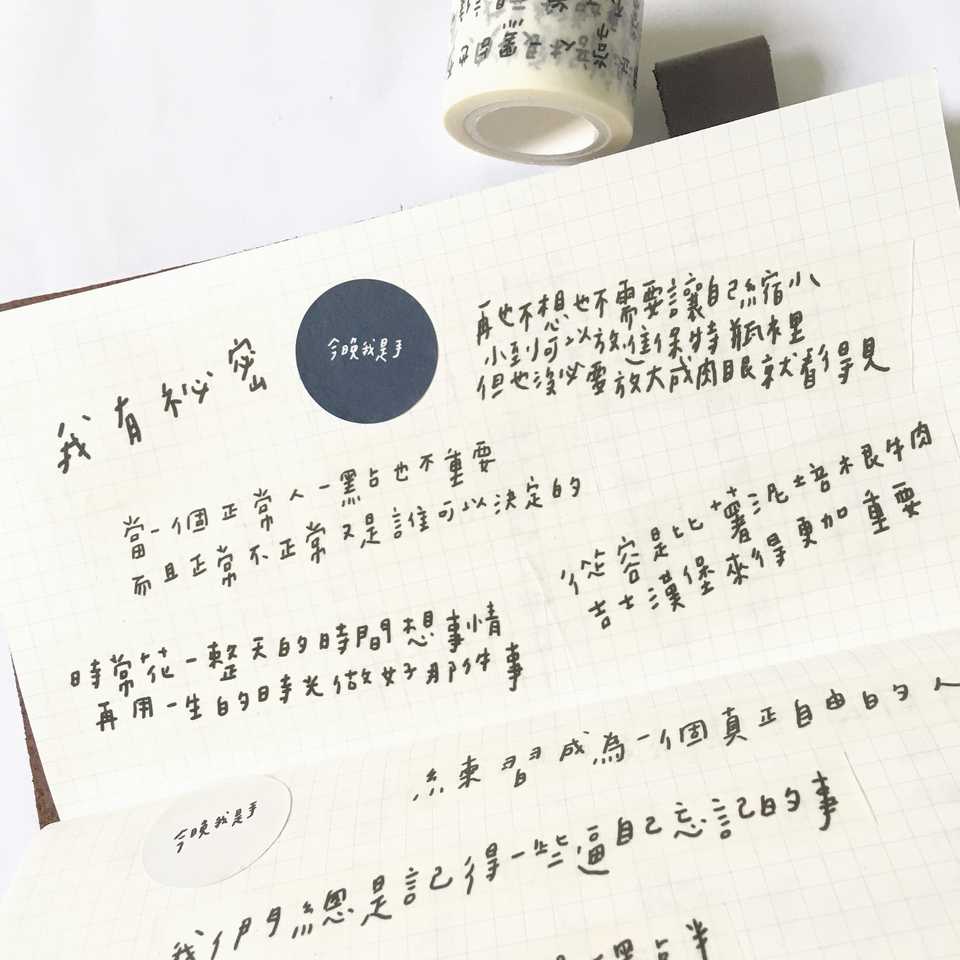 今晚我是手
我有祕密
再也不想也不需要讓自己縮小
小到可以放進保特瓶裡
但也沒必要放大成肉眼就看得見
當一個正常人一點也不重要
而且正常不正常又是誰可以決定的
從容是比薯泥土培根牛肉
吉士漢堡來得更加重要
時常花一整天的時間想事情
再用一生的時光做好那件事
練習成為一個真正自由的人
今晚我是手
我們總是記得一些逼自己忘記的事